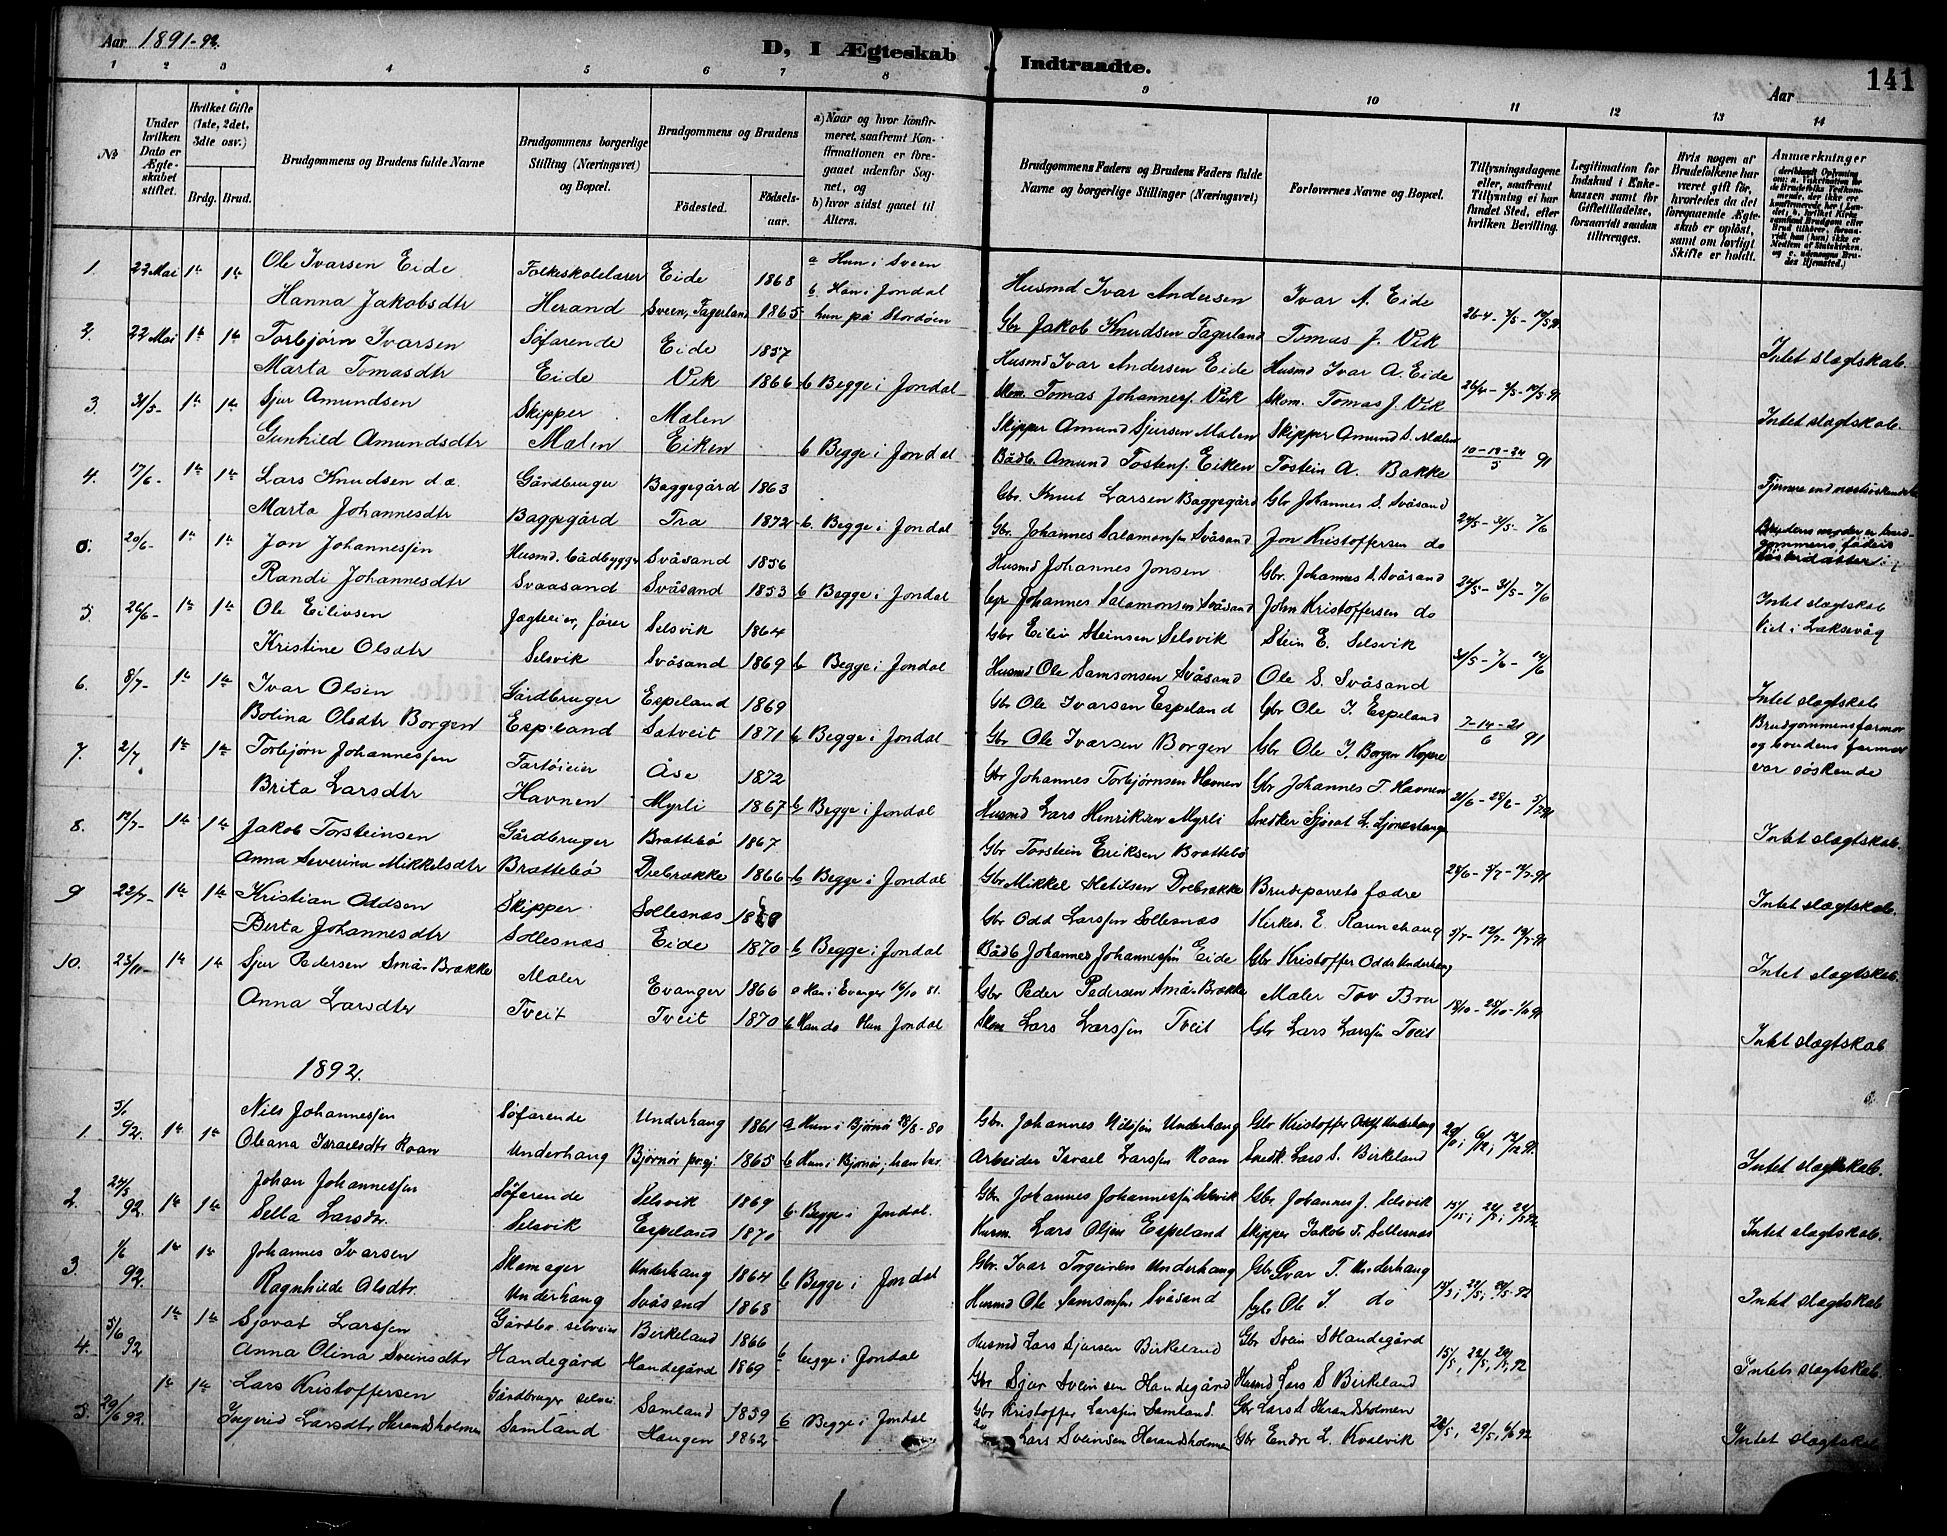 Aar 1891-92.
D, I Ægteskab Indtraadte.
Aar
141
1 2 3 4 5 6 7 8 9 10 11 12 13 14
No
Under hvilken Dato er Ægteskabet stiftet.
Hvilket Gifte (1ste, 2det, 3die osv.)
Brdg. Brud.
Brudgommens og Brudens fulde Navne
Brudgommens borgerlige Stilling (Næringsvei) og Bopæl.
Brudgommens og Brudens
Fødested.
Fødselsaar.
a) Naar og hvor Konfirmeret, saafremt Konfirmationen er foregaaet udenfor Sognet, og
b) hvor sidst gaaet til Alters.
Brudgommens Faders og Brudens Faders fulde Navne og borgerlige Stillinger (Næringsvei)
Forlovernes Navne og Bopæl.
Tillysningsdagene eller, saafremt Tillysning ei har fundet Sted, efter hvilken Bevilling.
Legitimation for Indskud i Enkekassen samt for Giftetilladelse, forsaavidt saadan tiltrænges.
Hvis nogen af Brudefolkene har været gift før, hvorledes da det foregaaende Ægteskab er opløst, samt om lovligt Skifte er holdt.
Anmærkninger
1. 22 Mai 1ste 1ste Ole Ivarsen Eide Folkeskolelærer Eide 1868 a Hun i Sveen b. Han i Jondal Husmd Ivar Andersen Ivar A. Eide 26-4 - 3/5 - 10/5 91
Hanna Jakobsdtr Herand Sveen, Fagerland 1865 hun på Stordøen Gbr Jakob Knudsen Fagerland Tomas J. Vik Intet slægtskab.
2. 22 Mai 1ste 1ste Torbjørn Ivarsen Søfarende Eide 1857 Husmd Ivar Andersen Eide Husmd Ivar A. Eide 26/4 - 3/5 - 10/5 91
Marta Tomasdtr Eide Vik 1866 b Begge i Jondal Skom. Tomas Johannes. Vik Skom. Tomas J. Vik Intet slægtskab.
3. 31/5- 1ste 1ste Sjur Amundsen Skipper Mælen Skipper Amund Sjursen Mælen Skipper Amund S. Mælen
Gunhild Amundsdtr Mælen Eiken b Begge i Jondal Bådb. Amund Tostens. Eiken Tostein A. Bakke
4. 17/6- 1ste 1ste Lars Knudsen d.æ. Gårdbruger Baggegård 1863 Gbr. Knut Larsen Baggegård Gbr Johannes S. Svåsand 24/5 - 31/5 - 7/6
Marta Johannesdtr Baggegård Tra 1872 b Begge i Jondal Gbr. Johannes Salamonsen Svåsand Jon Kristoffersen do
20/6- 1ste 1ste Jon Johannessen Husmd. bådbygger Svåsand 1856 Husmd Johannes Jonsen Gbr. Johannes S. Svåsand 24/5 - 31/5 - 7/6
Randi Johannesdtr Svaasand Svåsand 1853 b Begge i Jondal Johannes Salamonsen Svåsand John Kristoffersen do Intet slægtskab
5. 26/6- 1ste 1ste Ole Eilivsen Jægteeier, fører Selsvik 1864 Gbr Eiliv Steinsen Selsvik Stein E. Selsvik 31/5 - 7/6 - 14/6 Viet i Laksevåg
Kristine Olsdtr Selsvik Svåsand 1869 b Begge i Jondal Husmd Ole Samsonsen Svåsand Ole S. Svåsand Intet slægtskab
6. 8/7- 1ste 1ste Ivar Olsen Gårdbruger Espeland 1869 Gbr Ole Ivarsen Espeland Gbr Ole I. Espeland 7-14-21/6 91 Brudgommens farmor
Bolina Olsdtr Borgen Espeland Satveit 1871 b Begge i Jondal Gbr Ole Ivarsen Borgen Gbr Ole I. Borgen og brudens farmor
7. 2/7 1ste 1ste Torbjørn Johannessen Fartøieier Åse 1872 Gbr Johannes Torbjørnsen Havnen Gbr Johannes T. Havnen 21/6 - 28/6 - 5/7 91 var søskende
Brita Larsdtr Havnen Myrli 1867 b Begge i Jondal Husmd Lars Henriksen Myrli Snedker Sjovat L. Ljonestange Intet slægtskab.
8. 12/7- 1ste 1ste Jakob Torsteinsen Gårdbruger Brattebø 1867 Gbr Torstein Eriksen Brattebø
Anna Severina Mikkelsdtr Brattebø Drebrække 1866 b Begge i Jondal Gbr Mikkel Ketilsen Drebrække Brudparrets fædre Intet slægtskab.
9 22/7- 1ste 1ste Kristian Oddsen Skipper Sollesnæs Gbr Odd Larssen Sollesnæs Kirkes. E. Raunehaug 5/7 - 12/7 - 19/7 91
Berta Johannesdtr Sollesnæs Eide 1870 b Begge i Jondal Bådb Johannes Johannessen Eide Gbr Kristoffer Odds. Underhaug Intet slægtskab.
10. 25/11- 1ste 1ste Sjur Pedersen Små-Brække Maler Evanger 1866 a Han i Evanger Gbr Peder Pedersen Små-Brække Maler Tov Bru 18/10 - 25/10 - 1/11 91
Anna Larsdtr Tveit Tveit 1870 Hun Jondal Skom Lars Larssen Tveit Gbr Lars Larssen Tveit Intet slægtskab
1892.
1. 5/1 92. 1ste 1ste Nils Johannessen Søfarende Underhaug 1861 a Hun i Bjørnør Gbr. Johannes Nilssen Underhaug Gbr Kristoffer Odds. Underhaug
Oleana Israelsdtr Roan Underhaug Bjørnør prgj 1865 b Hun i Bjørnør; han her Arbeider Israel Larssen Roan Snedk. Lars S. Birkeland Intet slægtskab.
2. 24/5 92. 1ste 1ste Johan Johannessen Søfarende Selsvik 1869 Gbr. Johannes Johannessen Selsvik Gbr. Johannes J. Selsvik
Sella Larsdtr. Selsvik Espeland 1870 b. Begge i Jondal. Husm. Lars Olsen Espeland Skipper Jakob T. Sollesnæs Intet slægtskab.
3. 1/6 92. 1ste 1ste Johannes Ivarsen Skomager Underhaug 1864 b Begge i Jondal Gbr. Ivar Torgeirsen Underhaug Gbr Ivar T. Underhaug
Ragnhilde Olsdtr. Underhaug Svåsand 1868 Husmd Ole Samsonsen Svåsand Ole S. do Intet slægtskab
4. 5/6 92 1ste 1ste Sjovat Larssen Gårdbr. selveier Birkeland 1866 Husmd Lars Sjursen Birkeland Gbr Svein S Handegård
Anna Olina Sveinsdtr Handegård Handegård 1869 b begge i Jondal Gbr Sjur Sveinsen Handegård Husmd Lars S Birkeland Intet slægtskab.
5. 29/6 92. 1ste 1ste Lars Kristoffersen Gårdbruger selvei. Samland 1859 b Begge i Jondal Gbr Kristoffer Larssen Samland. Gbr Lars S. Herandsholmen
Ingerid Larsdtr Herandsholmen Samland Haugen 1862 do Lars Sveinsen Herandsholmen Gbr Endre L. Kvalvik Intet slægtskab